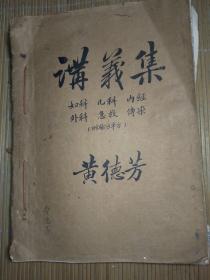 講義集
妇科 儿科 内经
外科 急救 傳染
黄德芳